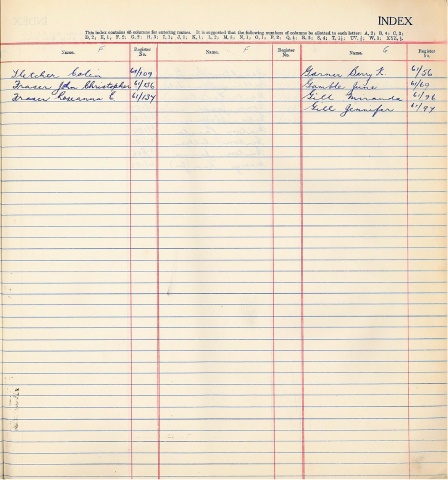 INDEX
This index contains 48 columns for entering names. It is suggested that the following numbers of columns be allotted to each letter: A, 2; B, 4; C, 3;
Name. F Register No. Name. F Register No. Name. G Register No.
Fletcher Colin 60/109 Garner Derry K. 61/56
Fraser John Christopher 61/136 Gamble June
Fraser Roseanna C. 61/134 Gill Miranda 61/96
Gill Jennifer 61/94